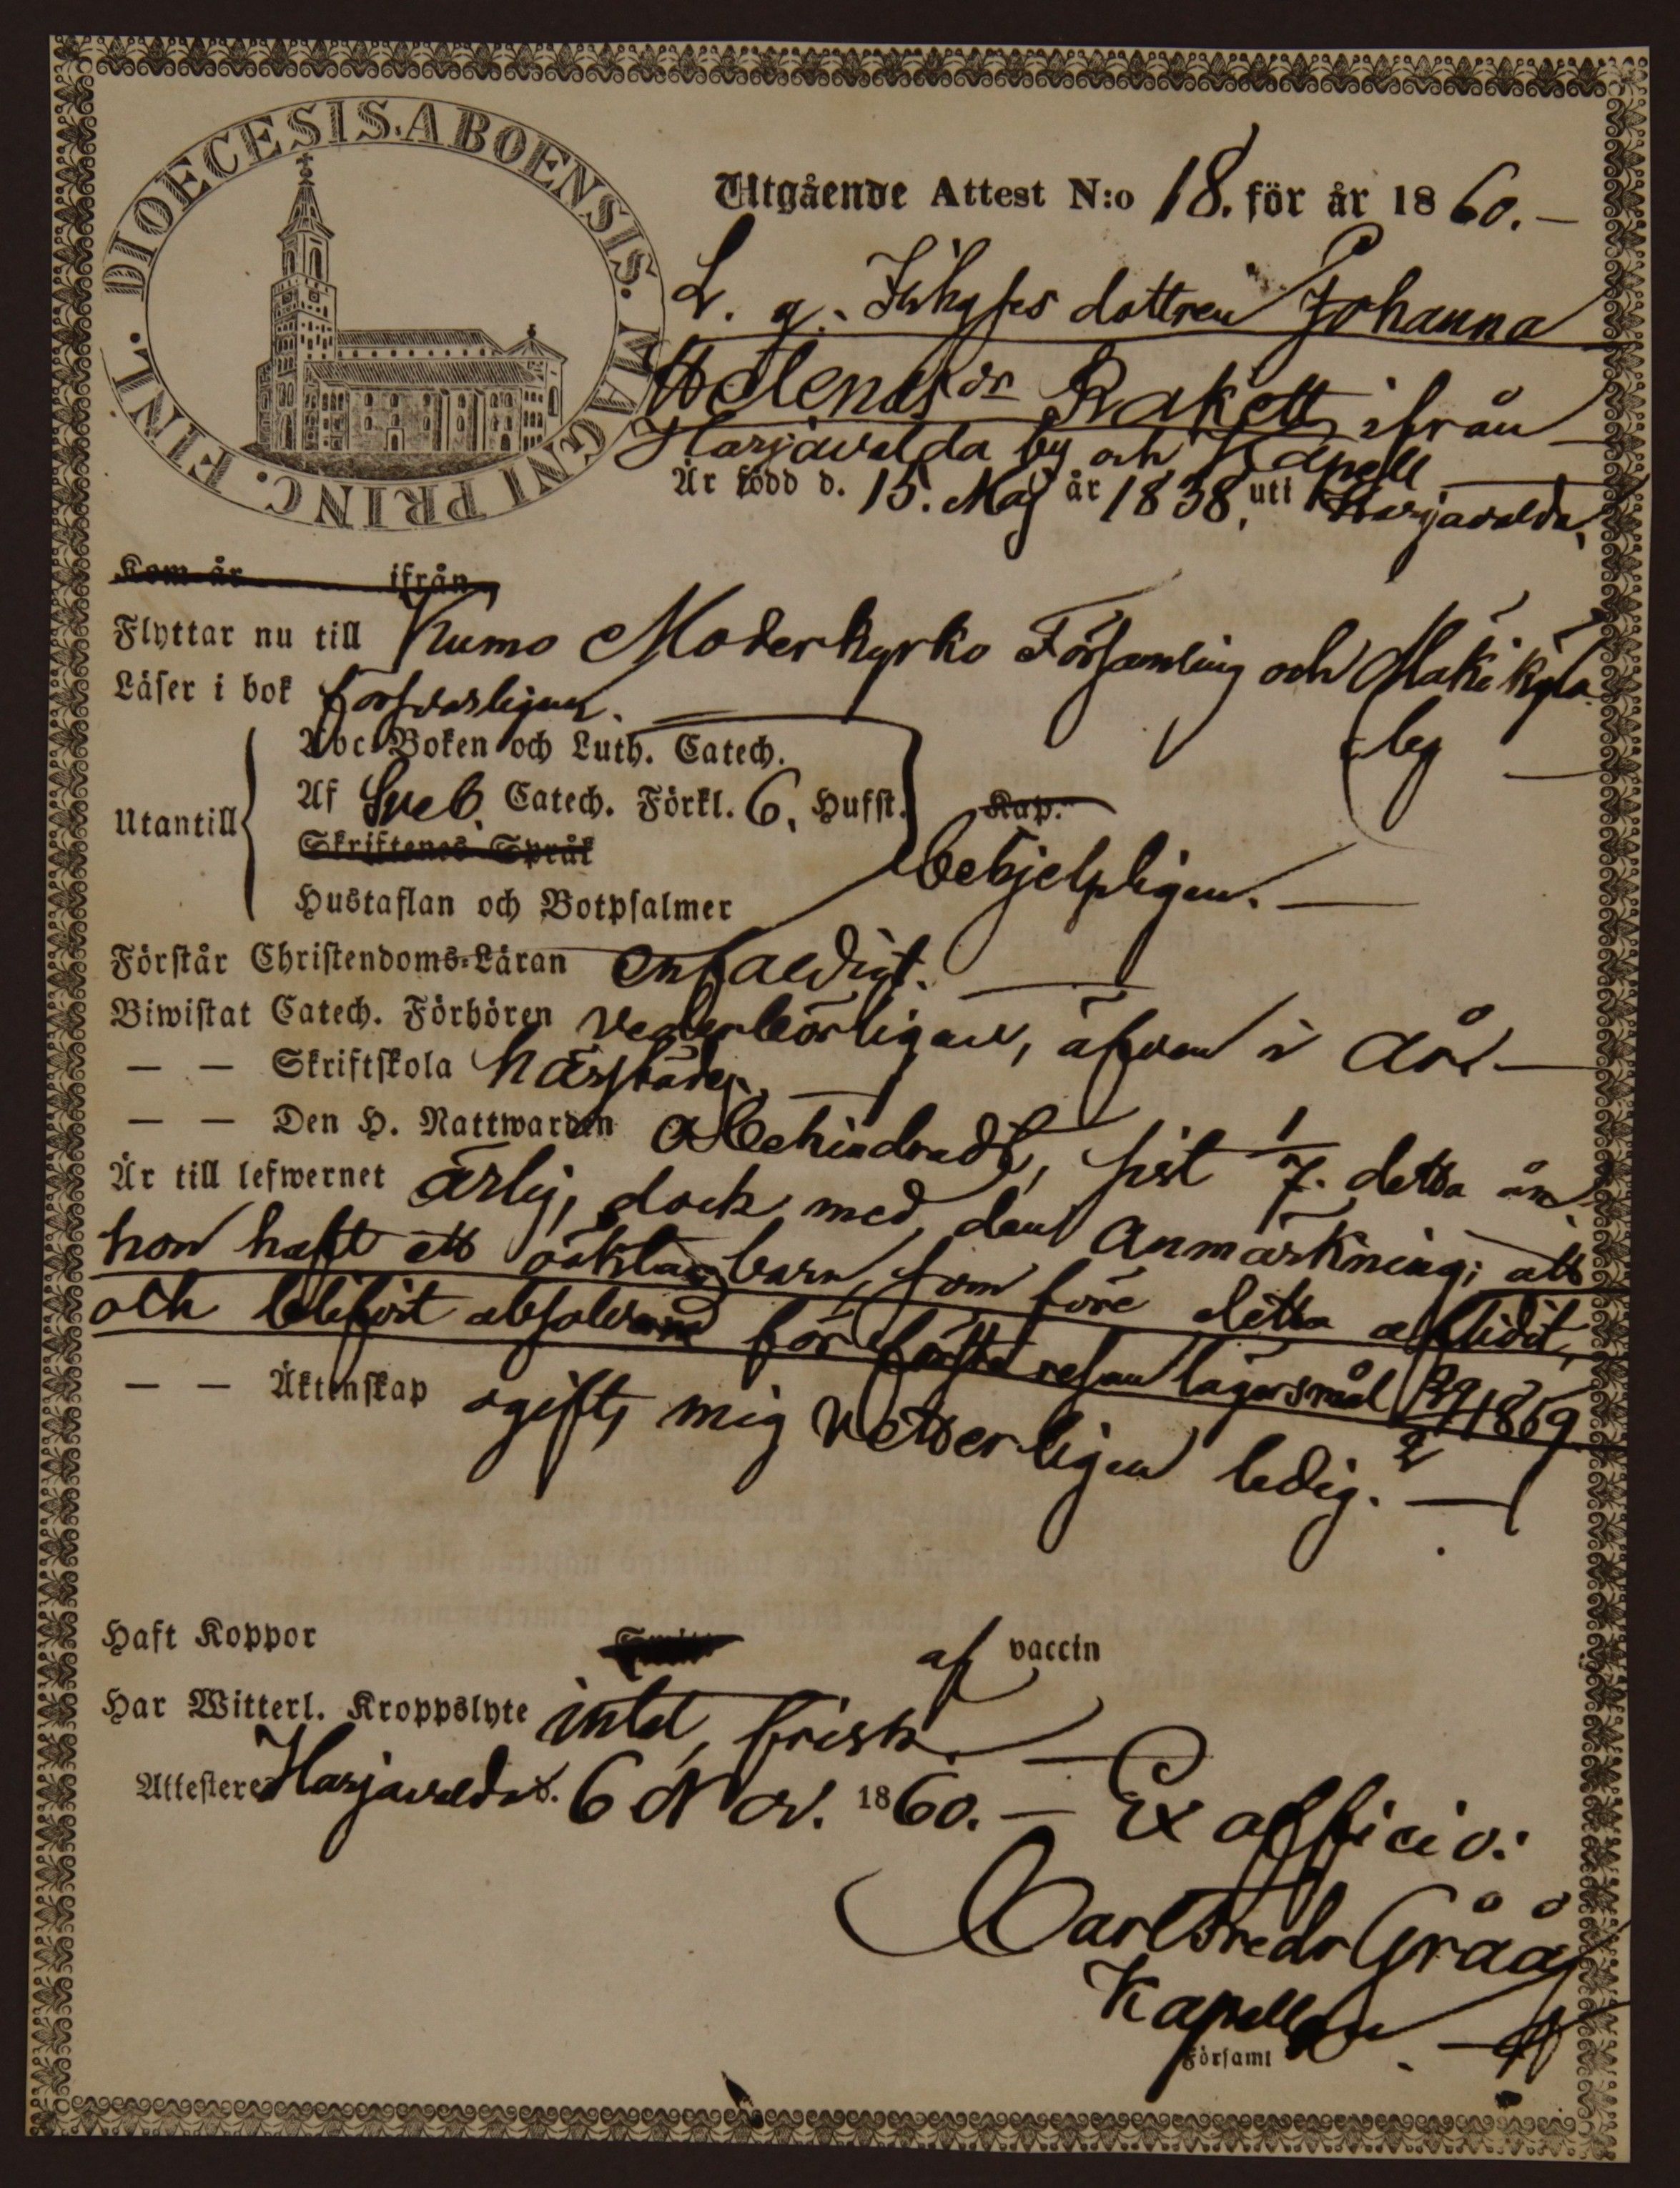 DIOECESIS. ABOENSIS. MAGNI PRINC. FINL.
Utgående Attest N:o 18. för år 1860.
L. g. dottren Johanna
Helena Rakett ifrån
Harjavalda by och Kapell
Är född d. 15. Maj år 1838, uti Harjavalda,
Kom år ifrån
Flyttar nu till Kumo Moderkyrko Församling och Mäkikylä
by
Läser i bok försvarligen.
Abc-Boken och Luth. Catech.
Utantill Af Sveb. Catech. Förkl. 6. Hufst. Kap.
Skriftenes Språk
behjelpligen.
Hustaflan och Botpsalmer
Förstår Christendoms-Läran enfaldigt.
Biwistat Catech. Förhören vederbörligen, äfven i år
— — Skriftskola härstädes.
— — Den H. Nattwarden obehindradt, sist 1/7. detta år.
Är till lefwernet ärlig, dock med den anmärkning; att
hon haft ett oäkta barn, som före detta aflidit,
och blifvit absolverad för första resan lägersmål 1859.
— — Äktenskap ogift, mig vetterligen ledig.
Haft Koppor af vaccin
Har Witterl. Kroppslyte intet, frisk.
Attesterer Harjavalda d. 6 Nov. 1860. — Ex officio:
Carl Fredr Gråå
Kapellan
Församl